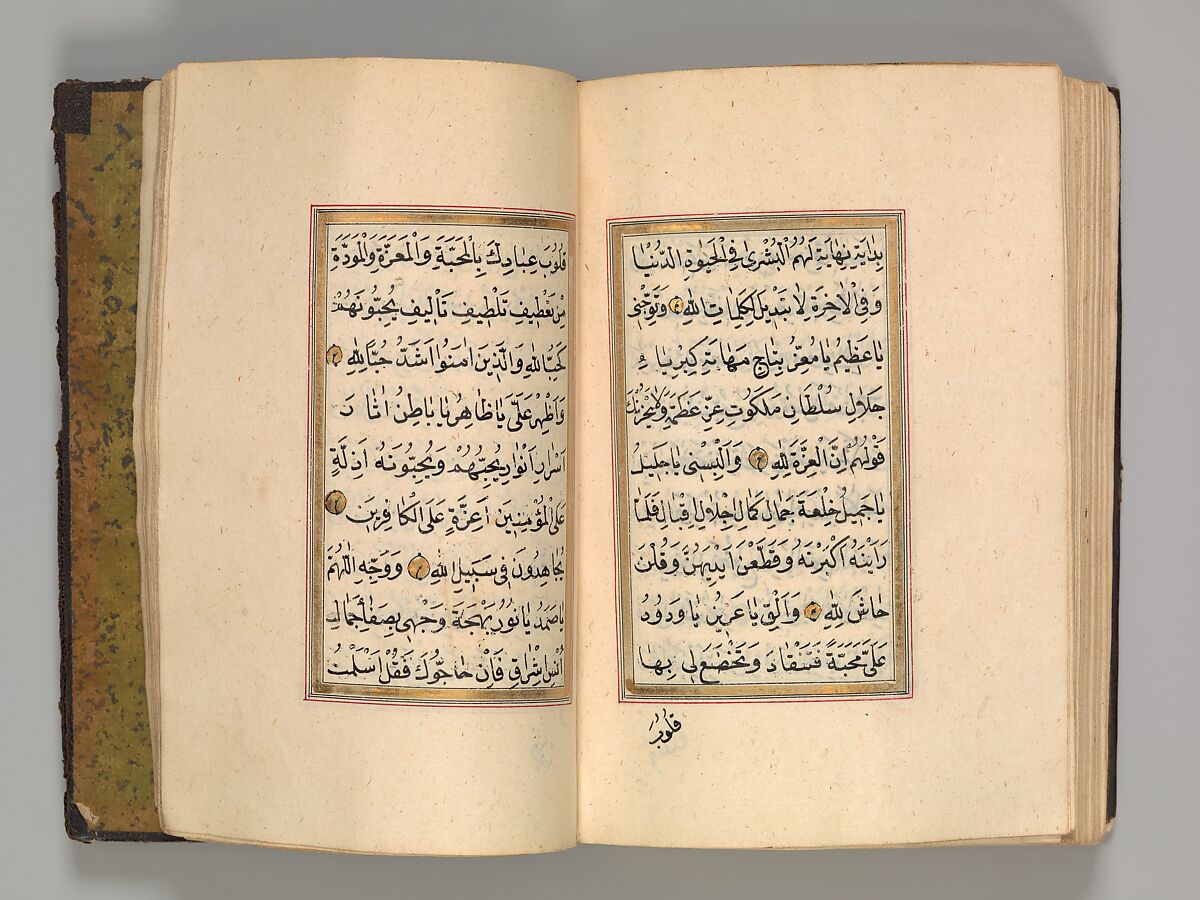 بِدَايَةِ نِهَايَةِ لَهُمُ الْبُشْرٰى فِي الْحَيٰوةِ الدُّنْيَا
وَفِي الْاٰخِرَةِ لَا تَبْدِيلَ لِكَلِمَاتِ اللّٰهِ وَتَوِّجْنِي
يَا عَظِيمُ يَا مُعِزُّ بِتَاجِ مَهَابَةِ كِبْرِيَاءِ
جَلَالِ سُلْطَانِ مَلَكُوتِ عِزِّ عَظَمَةِ وَلَا يَحْزُنْكَ
قَوْلُهُمْ اِنَّ الْعِزَّةَ لِلّٰهِ وَاَلْبِسْنِي يَا جَلِيلُ
يَا جَمِيلُ خِلْعَةَ جَمَالِ كَمَالِ اِجْلَالِ اِقْبَالِ فَلَمَّا
رَاَيْنَهُ اَكْبَرْنَهُ وَقَطَّعْنَ اَيْدِيَهُنَّ وَقُلْنَ
حَاشَ لِلّٰهِ وَاَلْقِ يَا عَزِيزُ يَا وَدُودُ
عَلَيَّ مَحَبَّةً فَتَنْقَادَ وَتَخْضَعَ لِي بِهَا
قُلُوبُ
قُلُوبَ عِبَادِكَ بِالْمَحَبَّةِ وَالْمَعَزَّةِ وَالْمَوَدَّةِ
مِنْ تَعْطِيفِ تَلْطِيفِ تَاْلِيفِ يُحِبُّونَهُمْ
كَحُبِّ اللّٰهِ وَالَّذِينَ اٰمَنُوا اَشَدُّ حُبًّا لِلّٰهِ
وَاَظْهِرْ عَلَيَّ يَا ظَاهِرُ يَا بَاطِنُ اٰثَارَ
اَسْرَارِ اَنْوَارِ يُحِبُّهُمْ وَيُحِبُّونَهُ اَذِلَّةٍ
عَلَى الْمُؤْمِنِينَ اَعِزَّةٍ عَلَى الْكَافِرِينَ
يُجَاهِدُونَ فِي سَبِيلِ اللّٰهِ وَوَجِّهِ اللّٰهُمَّ
يَا صَمَدُ يَا نُورُ بَهْجَةِ وَجْهِي بِصَفَاءِ جَمَالِ
اُنْسِ اِشْرَاقِ فَاِنْ حَاجُّوكَ فَقُلْ اَسْلَمْتُ